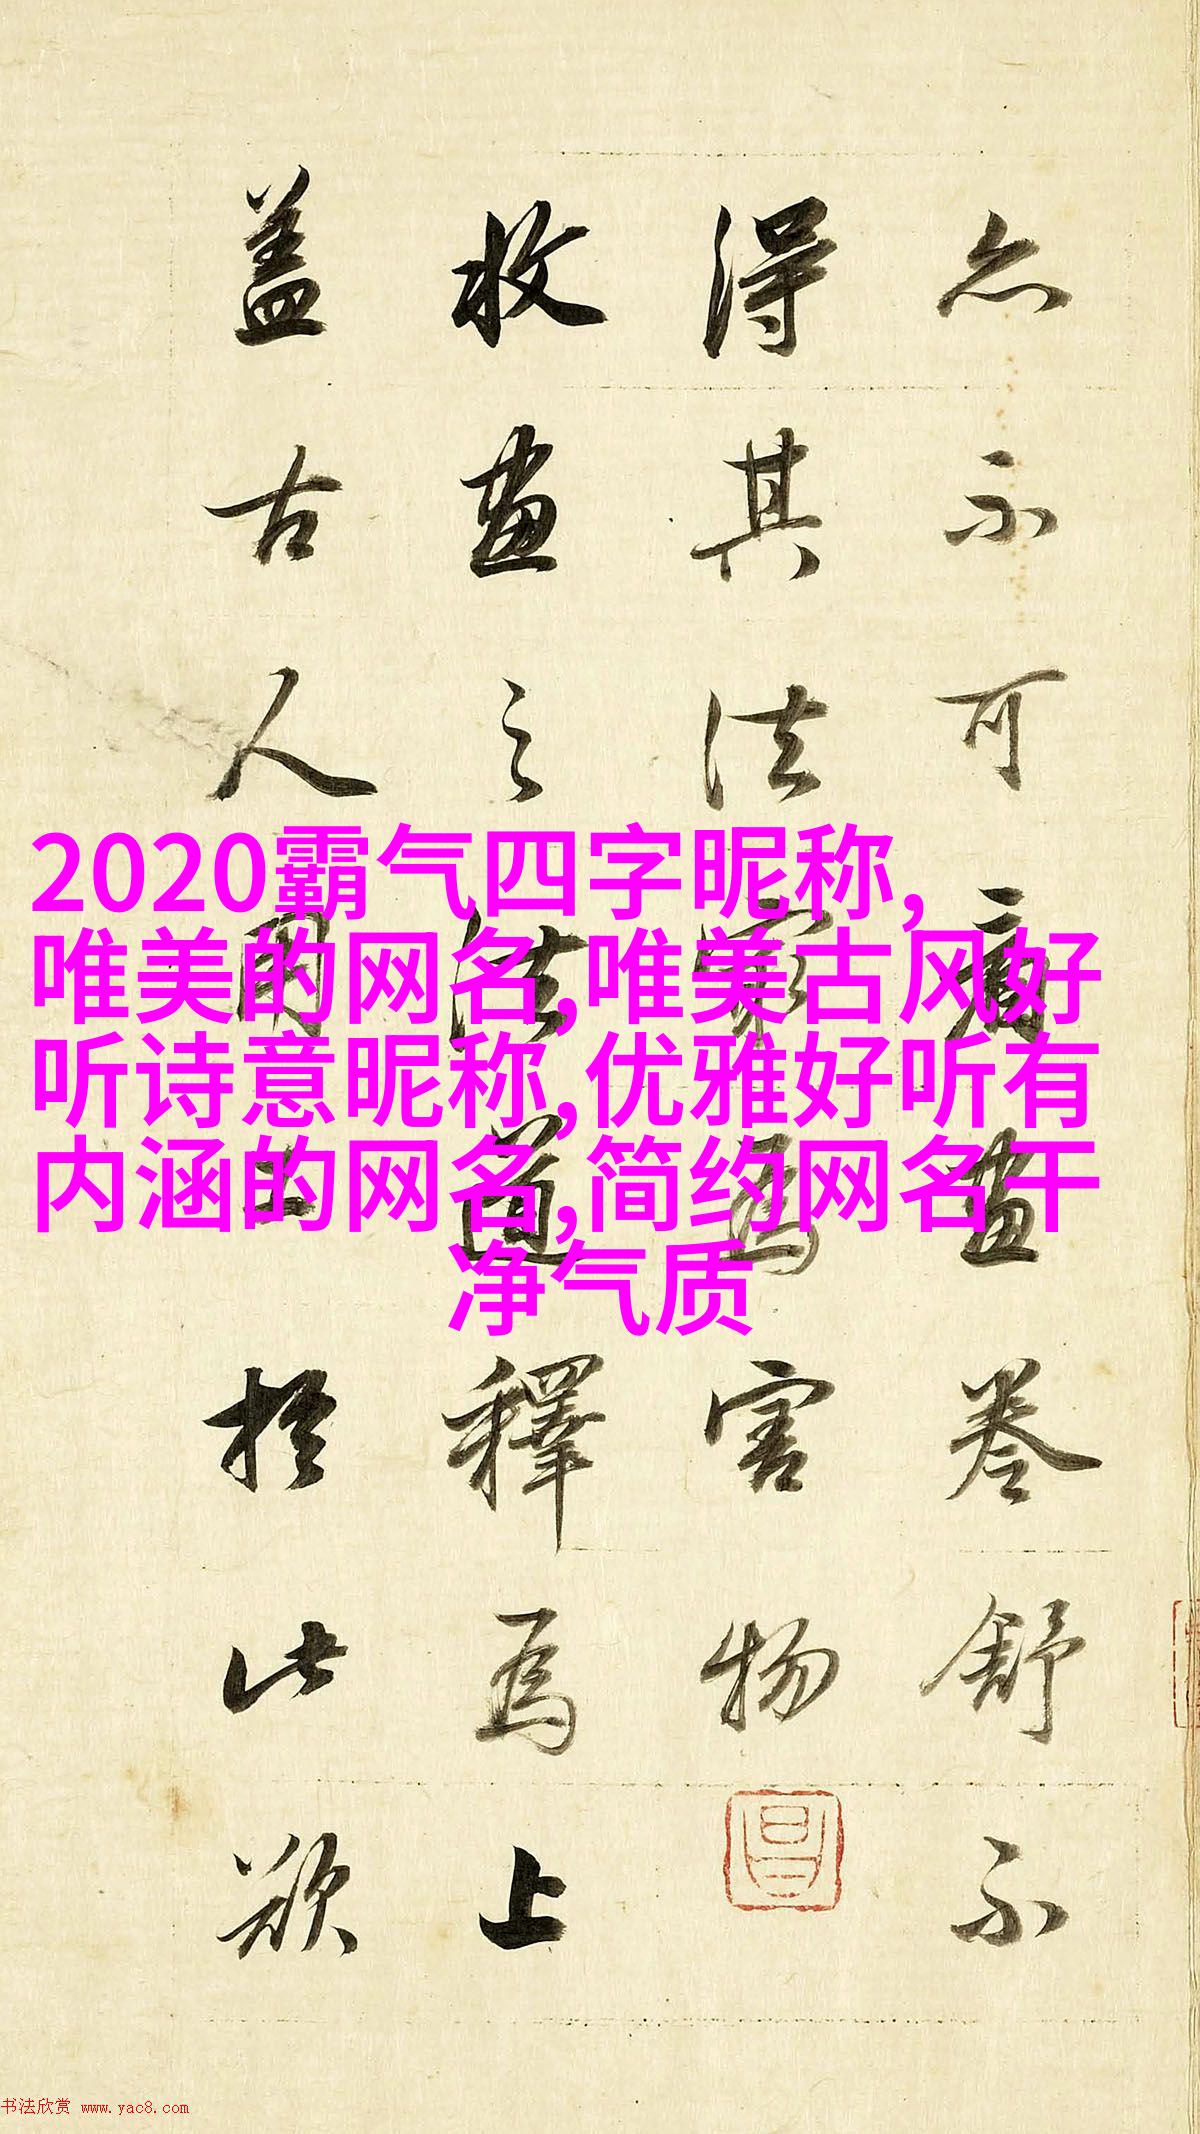 2020霸气四字昵称,
唯美的网名,唯美古风好
听诗意昵称,优雅好听有
内涵的网名,简约网名干
净气质
亦不可看畫卷舒不
得其法最為害物
收畫之法道釋為上
蓋古人用工於此欲
书法欣赏 www.yac8.com